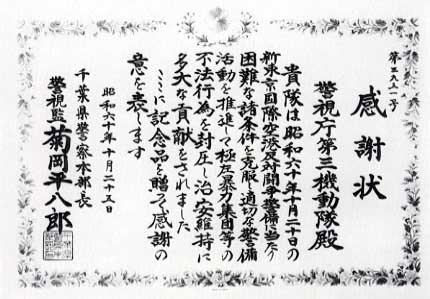 感謝状
警視庁第三機動隊殿
貴隊は昭和六十年十月二十日の
新東京国際空港反対闘争警備に当たり
困難な諸条件を克服し適切な警備
活動を推進して極左暴力集団等の
不法行為を封圧し治安維持に
多大な貢献をされました
ここに記念品を贈って感謝の
意を表します
昭和六十年十月二十五日
千葉県警察本部長
警視監 菊岡平八郎